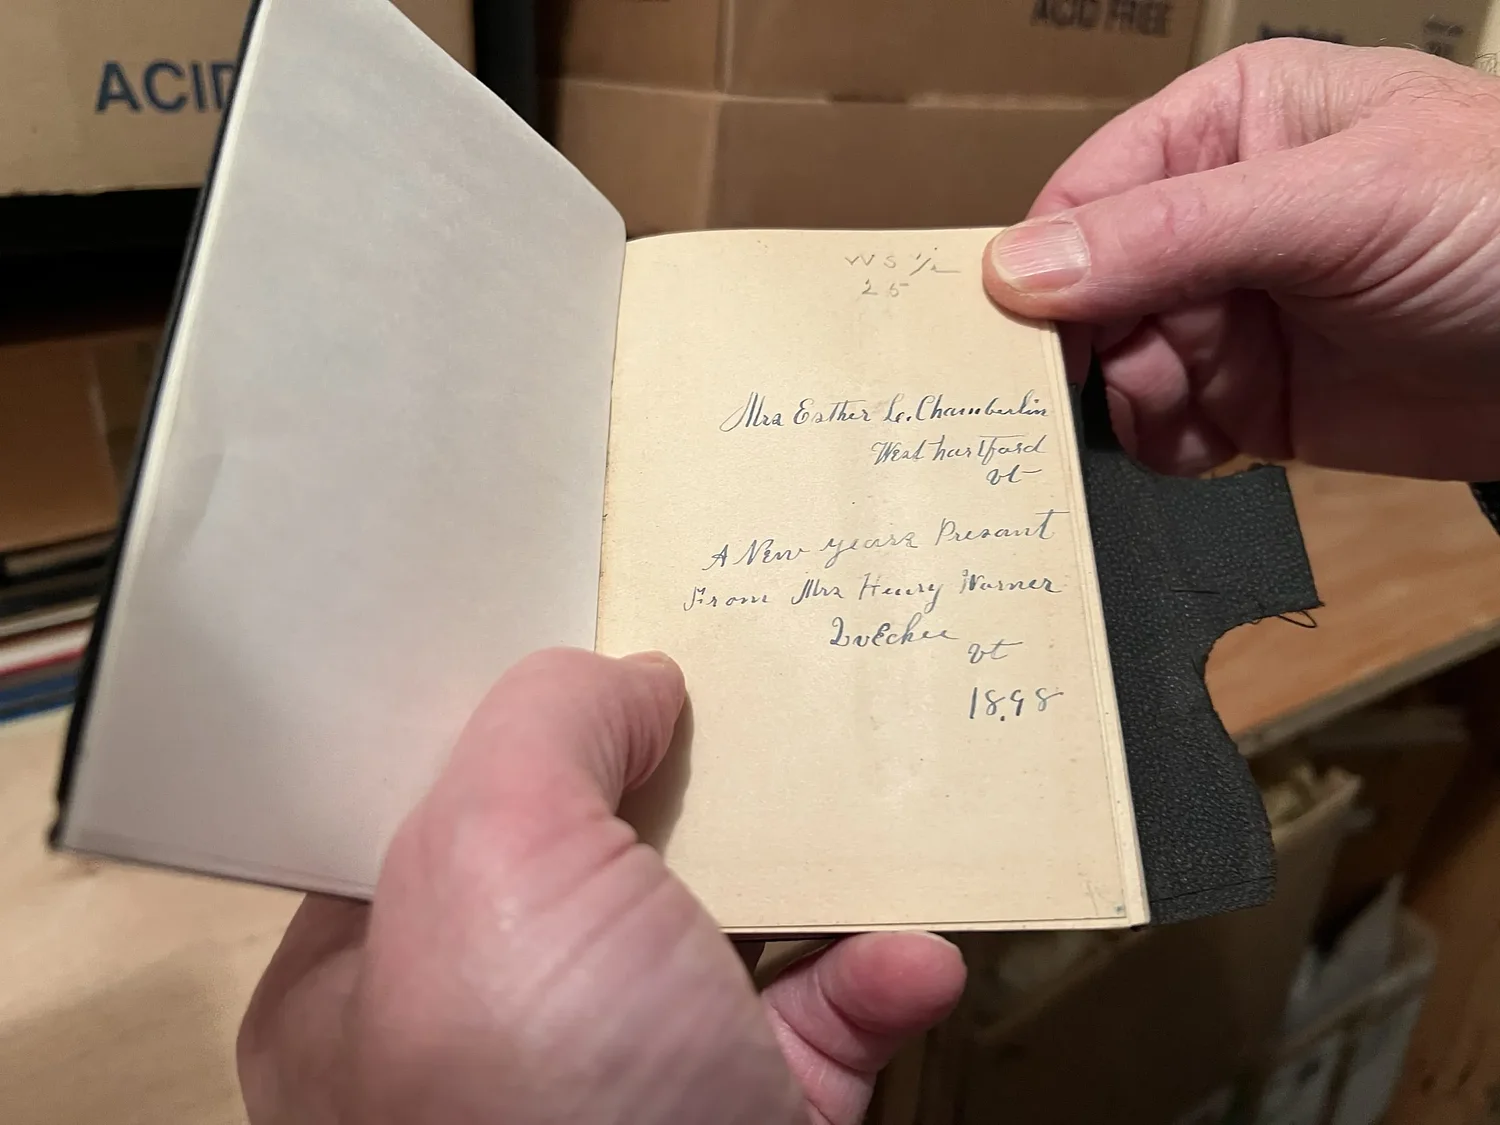 ACID
ACID FREE
25
Mrs Esther L. Chamberlin
West hartford
vt
A New years Presant
From Mrs Henry Warner
QuEchee
vt
1898